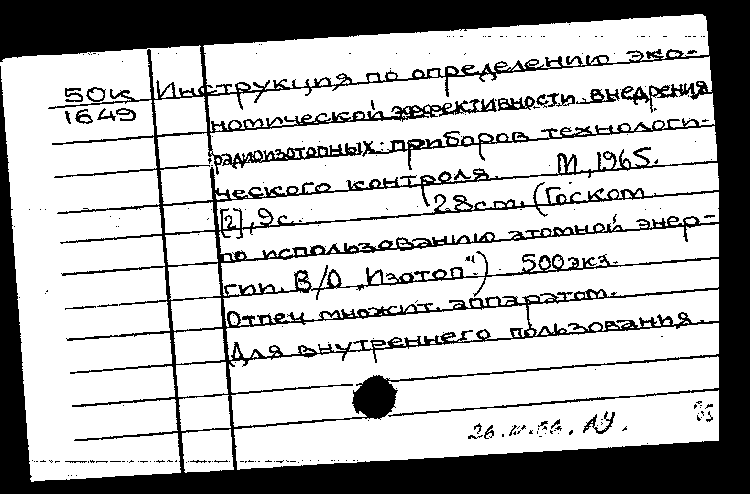 50к
1649
Инструкция по определению эко-
номической эффективности внедрения
радиоизотопных приборов технологи-
ческого контроля. М., 1965.
[2], 9с. 28см. (Госком.
по использованию атомной энер-
гии. В/О „Изотоп“.) 500экз.
Отпеч. множит. аппаратом.
Для внутреннего пользования.